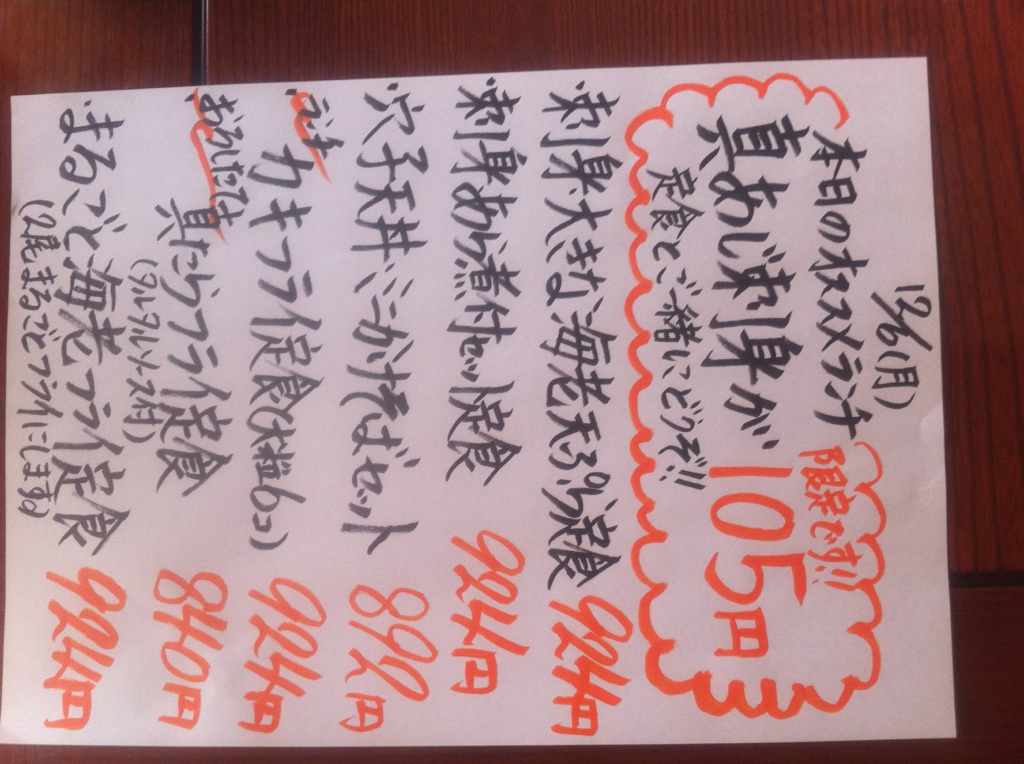 12/6(月)
本日のオススメランチ
限定です!!
真あじ刺身が 105円
定食とご一緒にどうぞ!!
・刺身大きな海老天ぷら定食 924円
・刺身あら煮付セット定食 924円
・穴子天丼ミニかけそばセット 892円
・カキフライ定食(大粒6コ) 924円
真たらフライ定食 840円
(タルタルソース付)
・まるごと海老フライ定食 924円
(2尾まるごとフライにします)